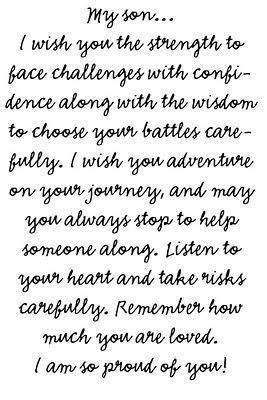 My son...
I wish you the strength to
face challenges with confi-
dence along with the wisdom
to choose your battles care-
fully. I wish you adventure
on your journey, and may
you always stop to help
someone along. Listen to
your heart and take risks
carefully. Remember how
much you are loved.
I am so proud of you!